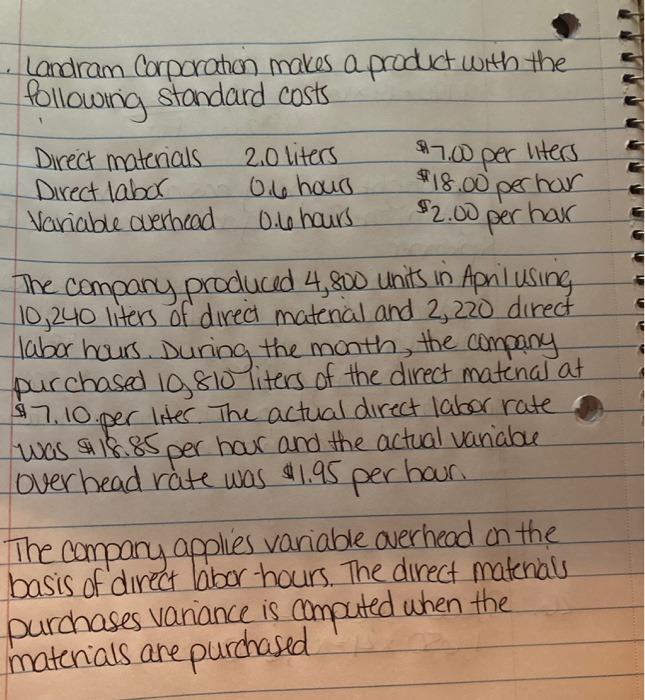 . Landram Corporation makes a product with the
following standard costs
Direct materials 2.0 liters $7.00 per liters
Direct labor 0.6 hours $18.00 per hour
Variable overhead 0.6 hours $2.00 per hour
The company produced 4,800 units in April using
10,240 liters of direct material and 2,220 direct
labor hours. During the month, the company
purchased 10,810 liters of the direct material at
$7.10 per liter. The actual direct labor rate
was $18.85 per hour and the actual variable
overhead rate was $1.95 per hour.
The company applies variable overhead on the
basis of direct labor-hours. The direct materials
purchases variance is computed when the
materials are purchased